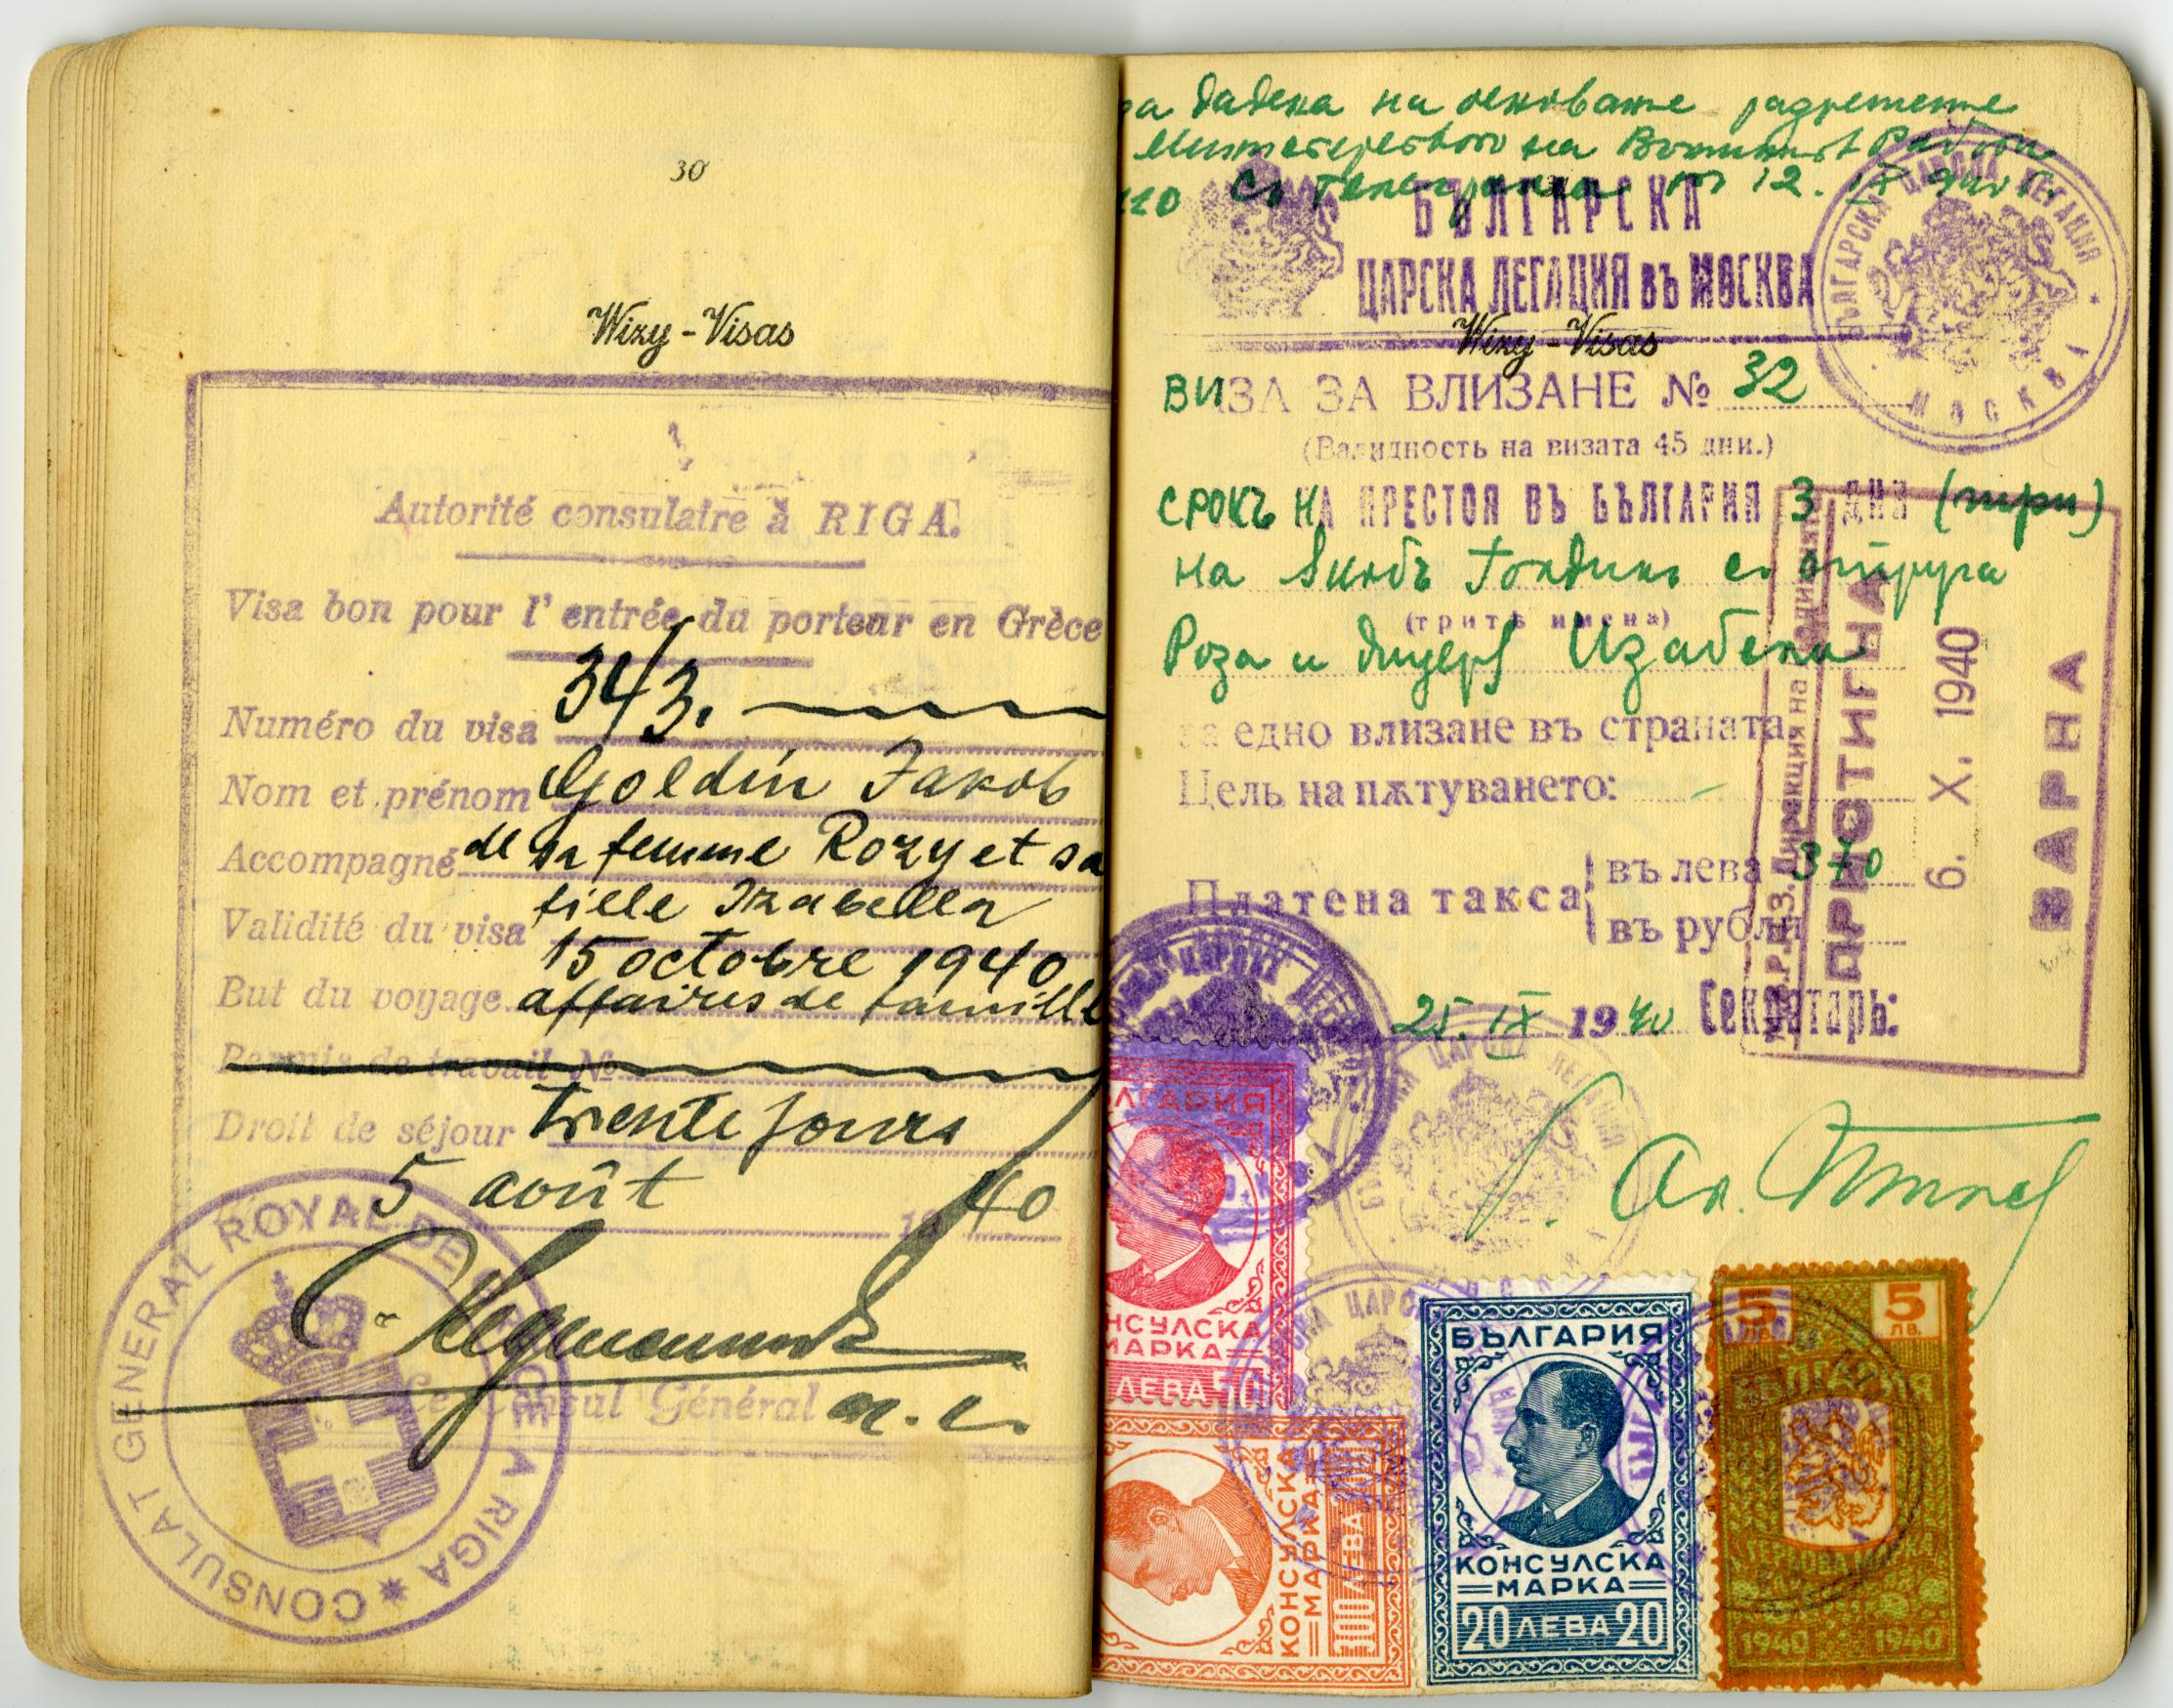 30
Wizy-Visas
Autorité consulaire à RIGA.
Visa bon pour l'entrée du porteur en Grèce
Numéro du visa 343.
Nom et prénom Goldin Jakob
Accompagné de sa femme Rozy et sa
fille Izabella
Validité du visa 15 octobre 1940
But du voyage affaires de famille
Permis de travail No
Droit de séjour trente jours
5 août 1940
Le Consul Général a.i.
CONSULAT GENERAL ROYAL DE GRECE A RIGA
дадена на основание разрешение
Министерството на Външнитѣ Работи
съ телеграма отъ 12. IX
БЪЛГАРСКА
ЦАРСКА ЛЕГАЦИЯ въ МОСКВА
БЪЛГАРСКА ЦАРСКА ЛЕГАЦИЯ * МОСКВА
Wizy-Visas
ВИЗА ЗА ВЛИЗАНЕ № 32
(Валидность на визата 45 дни.)
СРОКЪ НА ПРЕСТОЯ ВЪ БЪЛГАРИЯ 3 ДНИ (три)
на Якобъ Голдинъ съ съпруга
(тритѣ имена)
Роза и дъщеря Изабела
за едно влизане въ страната
Цель на пѫтуването: -
Платена такса въ лева 370
въ рубли
25. IX 1940 Секретарь:
ПРИСТИГНА
6. X. 1940
ВАРНА
БЪЛГАРИЯ
КОНСУЛСКА
МАРКА
ЛЕВА 50
КОНСУЛСКА
МАРКА
100 ЛЕВА 100
БЪЛГАРИЯ
КОНСУЛСКА
МАРКА
20 ЛЕВА 20
5 ЛВ. 5 ЛВ.
БЪЛГАРИЯ
ГЕРБОВА МАРКА
1940 1940